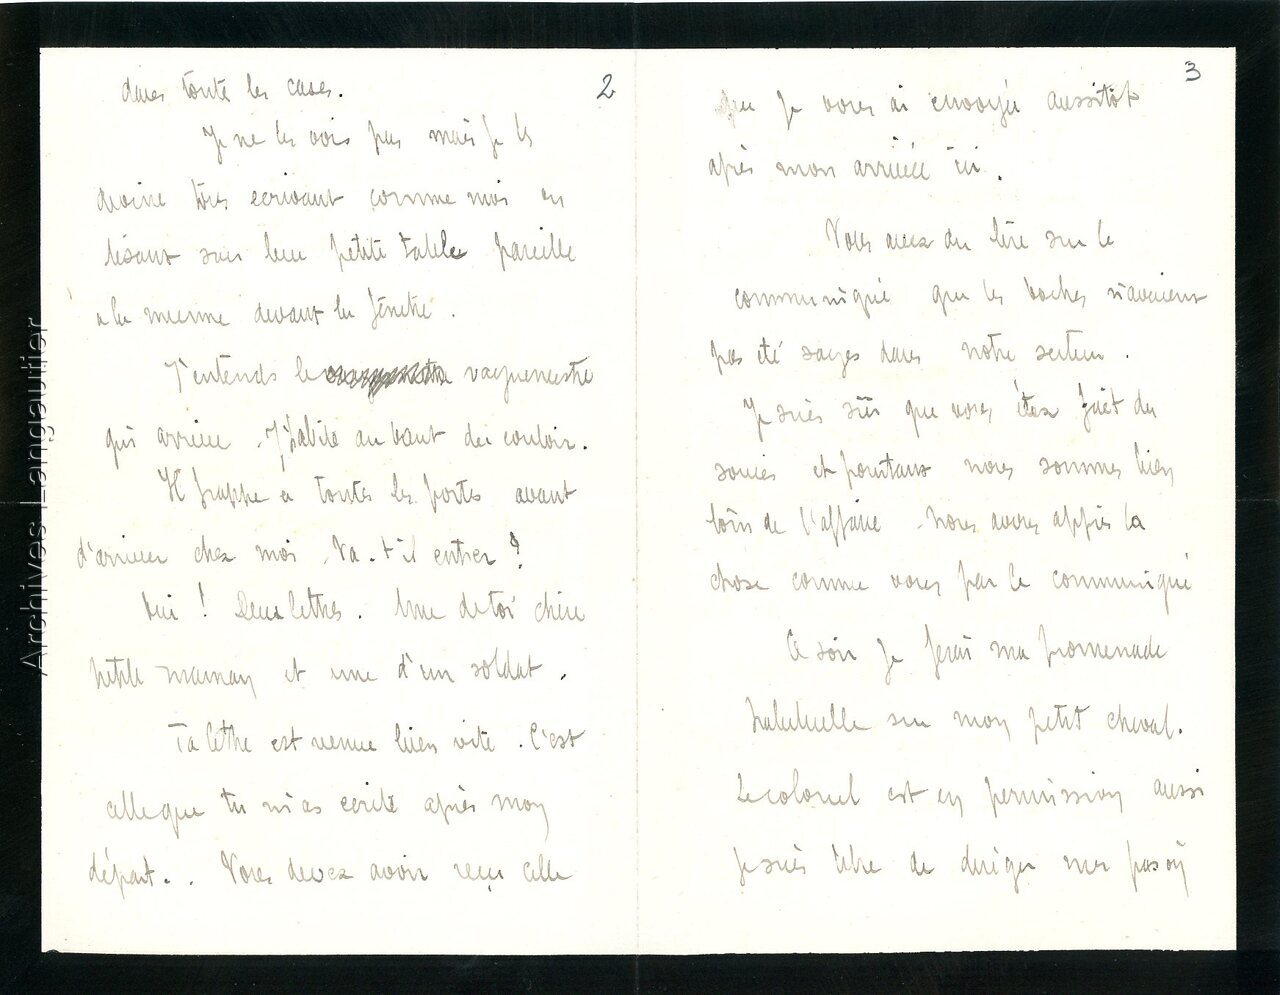 2
dans toute les cases.
Je ne les vois pas mais je les
devine tous ecrivant comme moi en
lisant sur leur petite table pareille
a la mienne devant la fenetre.
J'entends le vaguemestre
qui arrive. J'habite au bout du couloir.
Il frappe a toutes les portes avant
d'arriver chez moi. Va-t-il entrer ?
Oui ! Deux lettres. Une de toi chère
petite maman et une d'un soldat.
Ta lettre est venue bien vite. C'est
celle que tu m'as ecrite après mon
départ.. Vous devez avoir reçu celle
3
que je vous ai envoyée aussitot
après mon arrivée ici.
Vous avez du lire sur le
communiqué que les boches n'avaient
pas été sages dans notre secteur.
Je suis sûr que vous étes fait du
soucis et pourtant nous sommes bien
loin de l'affaire. Nous avons appris la
chose comme vous par le communiqué
Ce soir je ferai ma promenade
habituelle sur mon petit cheval.
Le colonel est en permission aussi
je suis libre de diriger mes pas où
Archives Langautier